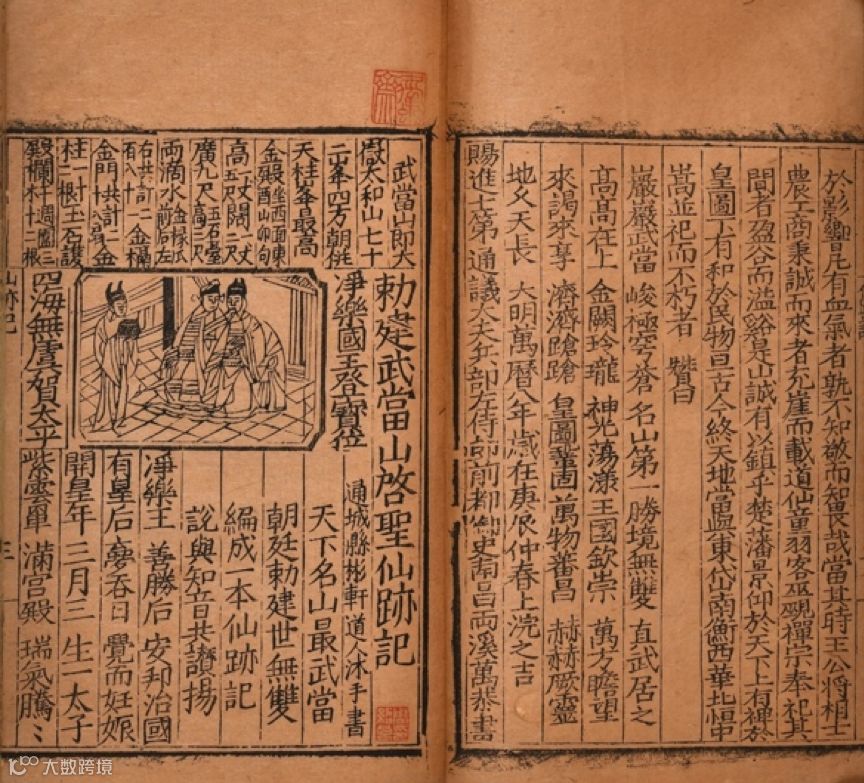 於影響凡有血氣者孰不知敬而知畏哉當其時王公將相士
農工商秉誠而來者充崖而載道仙童羽客巫覡禪宗奉祀其
間者盈谷而溢谿是山誠有以鎮乎楚藩景仰於天下上有裨於
皇圖下有和於民物亘古今終天地當與東岱南衡西華北恒中
嵩並祀而不朽者 贊曰
巖巖武當 峻極穹蒼 名山第一 勝境無雙 真武居之
高高在上 金闕玲瓏 神光蕩漾 王國欽崇 萬方瞻望
來謁來享 濟濟蹌蹌 皇圖鞏固 萬物蕃昌 赫赫厥靈
地久天長 大明萬曆八年歲在庚辰仲春上浣之吉
賜進士第通議大夫兵部左侍郎前都御史南昌兩溪萬恭書
武當山即大
嶽太和山七十
二峯四方朝拱
天柱峯最高
金殿坐西面東酉山卯向
高一丈五尺闊一丈二尺
廣九尺玉石臺高三尺
兩滴水金椽瓜前后左
右共計二百八十一金欄
金門共計二十八
柱一十二根玉石護
殿欄杆十週圍三十二根
勅建武當山啓聖仙跡記
淨樂國王登寶位
四海無虞賀太平
通城縣彬軒道人沐手書
天下名山最武當
朝廷勅建世無雙
編成一本仙跡記
說與知音共讚揚
淨樂王 善勝后 安邦治國
有皇后 夢吞日 覺而妊娠
開皇年 三月三 生一太子
紫雲罩 滿宮殿 瑞氣騰〻
山跡記
三
大数跨境